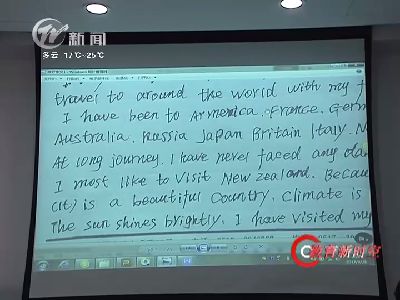 新闻
多云 17℃-25℃
travel to around the world with my
I have been to Armenica. France. Germ
Australia. Rassia Japan Britain Italy. N
At long journey. I have never faced any dan
I most like to visit New zealand. Becau
(it) is a beautiful Country. Climate is
The sun shines brightly. I have visited my
教育新时空